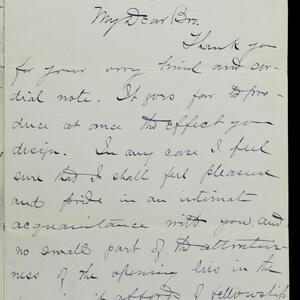 My Dear Bro.
Thank you
for your very kind and cor-
dial note. It goes far to pro-
duce at once the effect you
design. In any case I feel
sure that I shall feel pleasure
and pride in an intimate
acquaintance with you, and
no small part of the attractive-
ness of the opening lies in the
it affords of fellowship